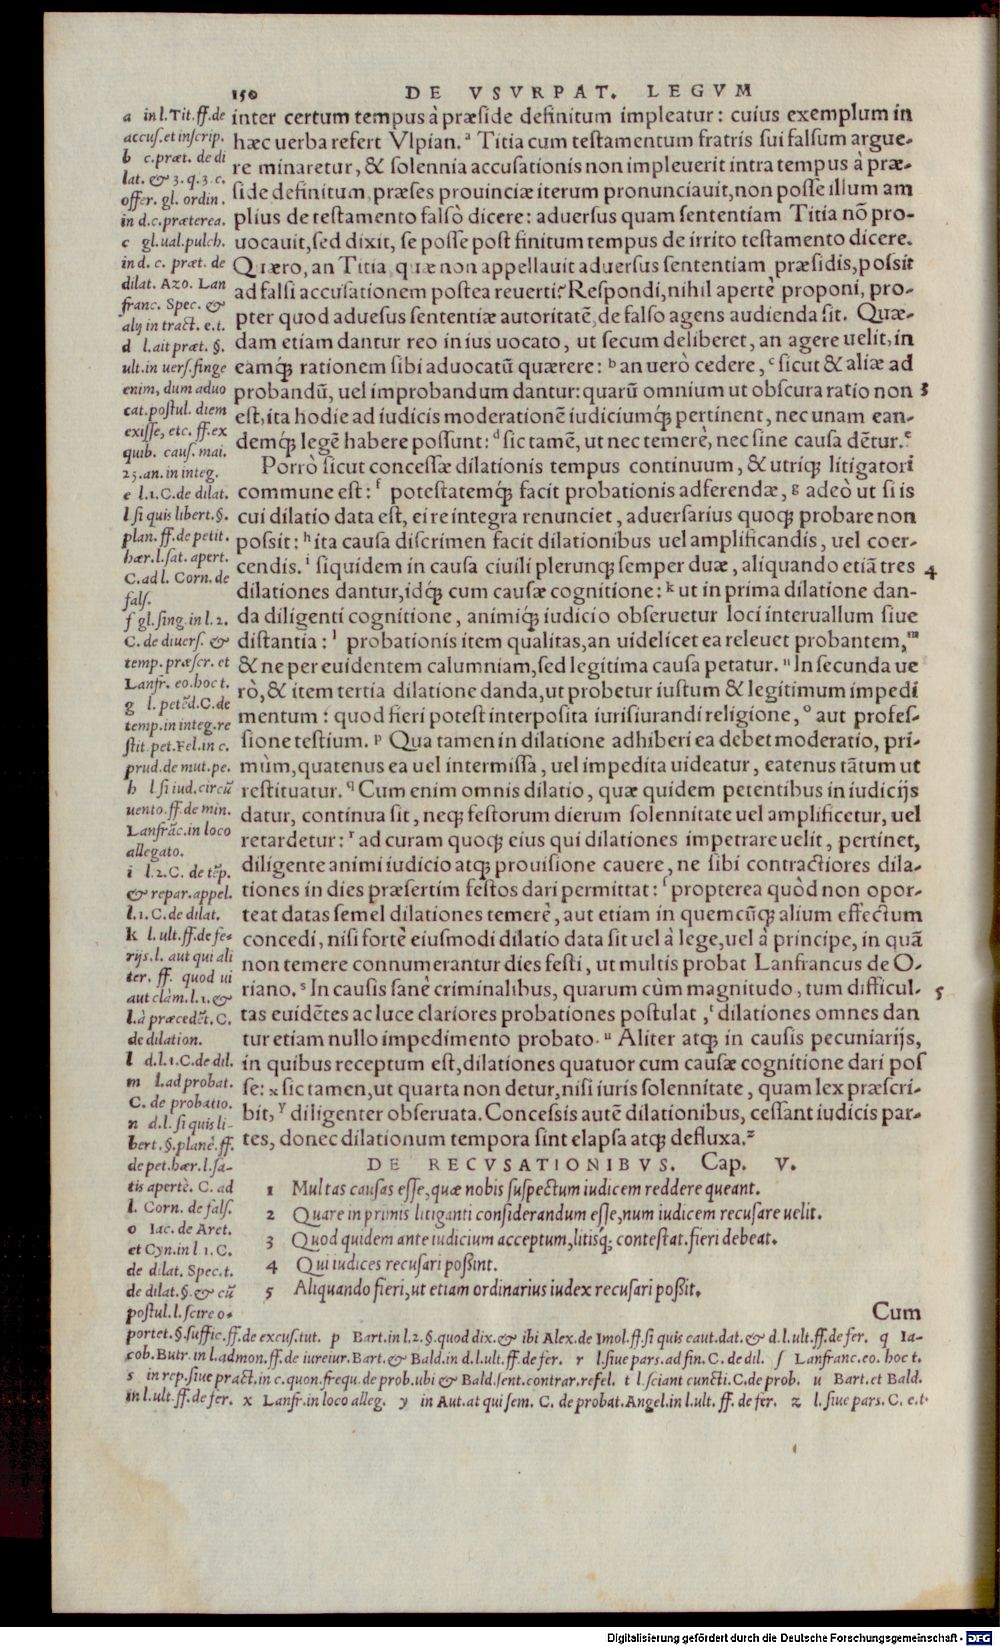 150 DE VSVRPAT. LEGVM
inter certum tempus à præside definitum impleatur: cuius exemplum in
hæc uerba refert Vlpian.ᵃ Titia cum testamentum fratris sui falsum argue-
re minaretur, & solennia accusationis non impleuerit intra tempus à præ-
side definitum, præses prouinciæ iterum pronunciauit, non posse illum am
plius de testamento falsò dicere: aduersus quam sententiam Titia nõ pro-
uocauit, sed dixit, se posse post finitum tempus de irrito testamento dicere.
Quæro, an Titia, quæ non appellauit aduersus sententiam præsidis, possit
ad falsi accusationem postea reuerti? Respondi, nihil apertè proponi, pro-
pter quod aduesus sententiæ autoritatē, de falso agens audienda sit. Quæ-
dam etiam dantur reo in ius uocato, ut secum deliberet, an agere uelit, in
eamq́; rationem sibi aduocatū quærere: ᵇ an uerò cedere, ᶜ sicut & aliæ ad
probandū, uel improbandum dantur: quarū omnium ut obscura ratio non 3
est, ita hodie ad iudicis moderationē iudiciumq́; pertinent, nec unam ean-
demq́; legē habere possunt: ᵈ sic tamē, ut nec temerè, nec sine causa dētur.ᵉ
Porrò sicut concessæ dilationis tempus continuum, & utriq; litigatori
commune est: ᶠ potestatemq́; facit probationis adferendæ, ᵍ adeò ut si is
cui dilatio data est, ei re integra renunciet, aduersarius quoq; probare non
possit: ʰ ita causa discrimen facit dilationibus uel amplificandis, uel coer-
cendis. ⁱ siquidem in causa ciuili plerunq; semper duæ, aliquando etiā tres 4
dilationes dantur, idq́; cum causæ cognitione: ᵏ ut in prima dilatione dan-
da diligenti cognitione, animiq́; iudicio obseruetur loci interuallum siue
distantia: ˡ probationis item qualitas, an uidelicet ea releuet probantem,ᵐ
& ne per euidentem calumniam, sed legitima causa petatur. ⁿ In secunda ue
rò, & item tertia dilatione danda, ut probetur iustum & legitimum impedi
mentum: quod fieri potest interposita iurisiurandi religione, ᵒ aut profes-
sione testium. ᵖ Qua tamen in dilatione adhiberi ea debet moderatio, pri-
mùm, quatenus ea uel intermissa, uel impedita uideatur, eatenus tātum ut
restituatur. ᑫ Cum enim omnis dilatio, quæ quidem petentibus in iudicijs
datur, continua sit, neq; festorum dierum solennitate uel amplificetur, uel
retardetur: ʳ ad curam quoq; eius qui dilationes impetrare uelit, pertinet,
diligente animi iudicio atq; prouisione cauere, ne sibi contractiores dila-
tiones in dies præsertim festos dari permittat: ſ propterea quòd non opor-
teat datas semel dilationes temerè, aut etiam in quemcūq; alium effectum
concedi, nisi fortè eiusmodi dilatio data sit uel à lege, uel à principe, in quā
non temere connumerantur dies festi, ut multis probat Lanfrancus de O-
riano. ˢ In causis sanè criminalibus, quarum cùm magnitudo, tum difficul- 5
tas euidētes ac luce clariores probationes postulat, ᵗ dilationes omnes dan
tur etiam nullo impedimento probato. ᵘ Aliter atq; in causis pecuniarijs,
in quibus receptum est, dilationes quatuor cum causæ cognitione dari pos
se: ˣ sic tamen, ut quarta non detur, nisi iuris solennitate, quam lex præscri-
bit, ʸ diligenter obseruata. Concessis autē dilationibus, cessant iudicis par-
tes, donec dilationum tempora sint elapsa atq; defluxa.ᶻ
DE RECVSATIONIBVS. Cap. V.
1 Multas causas esse, quæ nobis suspectum iudicem reddere queant.
2 Quare in primis litiganti considerandum esse, num iudicem recusare uelit.
3 Quod quidem ante iudicium acceptum, litisq́; contestat. fieri debeat.
4 Qui iudices recusari possint.
5 Aliquando fieri, ut etiam ordinarius iudex recusari possit.
Cum
a in l. Tit. ff. de
accus. et inscrip.
b c. præt. de di
lat. & 3. q. 3. c.
offer. gl. ordin.
in d. c. præterea.
c gl. ual. pulch.
in d. c. præt. de
dilat. Azo. Lan
franc. Spec. &
alij in tract. e. t.
d l. ait præt. §.
ult. in uers. finge
enim, dum aduo
cat. postul. diem
exisse, etc. ff. ex
quib. caus. mai.
25. an. in integ.
e l. 1. C. de dilat.
l si quis libert. §.
plan. ff. de petit.
hær. l. sat. apert.
C. ad l. Corn. de
fals.
f gl. sing. in l. 2.
C. de diuers. &
temp. præscr. et
Lanfr. eo. hoc t.
g l. petēd. C. de
temp. in integ. re
stit. pet. Fel. in c.
prud. de mut. pe.
h l si iud. circū
uento. ff. de min.
Lanfrāc. in loco
allegato.
i l. 2. C. de tēp.
& repar. appel.
l. 1. C. de dilat.
k l. ult. ff. de fe-
rijs. l. aut qui ali
ter. ff. quod ui
aut clàm. l. 1. &
l. à præcedēt. C.
de dilation.
l d. l. 1. C. de dil.
m l. ad probat.
C. de probatio.
n d. l. si quis li-
bert. §. planè. ff.
de pet. hær. l. sa-
tis apertè. C. ad
l. Corn. de fals.
o Iac. de Aret.
et Cyn. in l 1. C.
de dilat. Spec. t.
de dilat. §. & cū
postul. l. scire o-
portet. §. suffic. ff. de excus. tut. p Bart. in l. 2. §. quod dix. & ibi Alex. de Imol. ff. si quis caut. dat. & d. l. ult. ff. de fer. q Ia-
cob. Butr. in l. admon. ff. de iureiur. Bart. & Bald. in d. l. ult. ff. de fer. r l. siue pars. ad fin. C. de dil. ſ Lanfranc. eo. hoc t.
s in rep. siue pract. in c. quon. frequ. de prob. ubi & Bald. sent. contrar. refel. t l. sciant cuncti. C. de prob. u Bart. et Bald.
in l. ult. ff. de fer. x Lanfr. in loco alleg. y in Aut. at qui sem. C. de probat. Angel. in l. ult. ff. de fer. z l. siue pars. C. e. t.
Digitalisierung gefördert durch die Deutsche Forschungsgemeinschaft - DFG